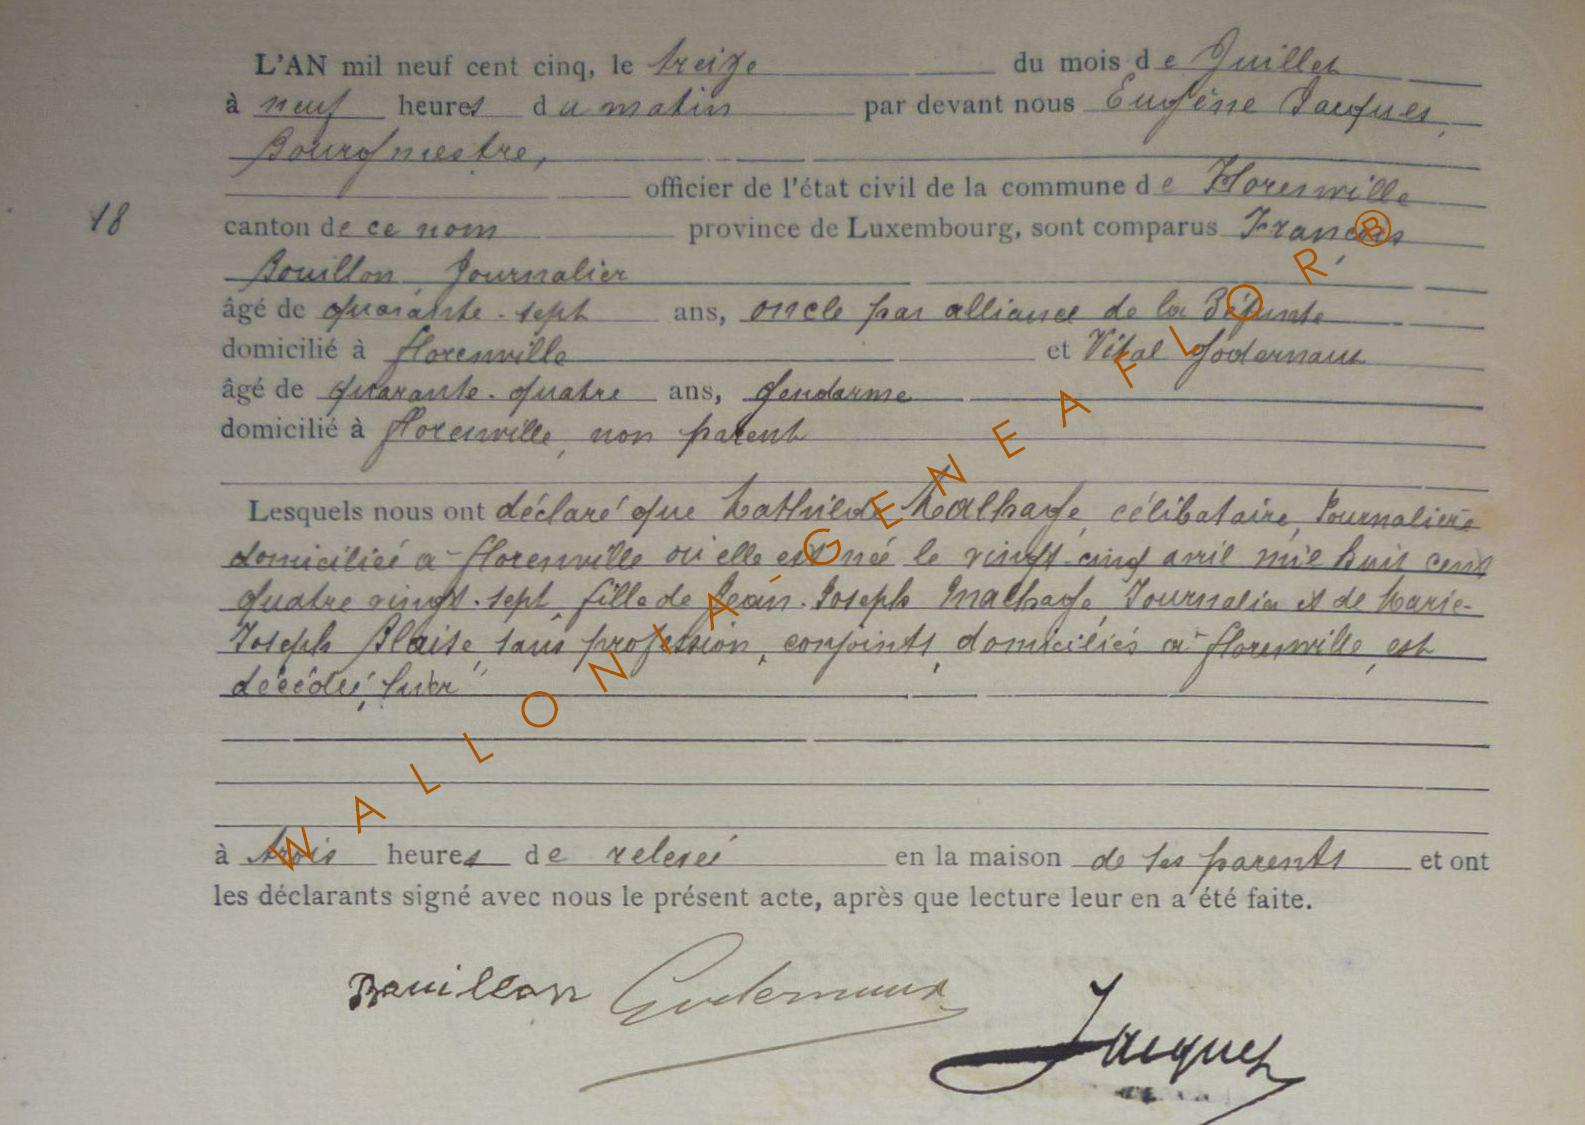 L'AN mil neuf cent cinq, le treize du mois de Juillet
à neuf heures du matin par devant nous Eugène Jacques,
Bourgmestre,
officier de l'état civil de la commune de Florenville
18
canton de ce nom province de Luxembourg, sont comparus François
Bouillon, Journalier
âgé de quarante-sept ans, oncle par alliance de la Défunte
domicilié à florenville et Vital Godernaux
âgé de quarante-quatre ans, gendarme
domicilié à florenville, non parent
Lesquels nous ont déclaré que Mathilde Malhage, célibataire, Journalière
domiciliée à florenville où elle est née le vingt-cinq avril mil huit cent
quatre vingt-sept, fille de Jean-Joseph Malhage, Journalier et de Marie-
Joseph Blaise, sans profession, conjoints, domiciliés à florenville, est
décédée, hier
à trois heures de relevée en la maison de ses parents et ont
les déclarants signé avec nous le présent acte, après que lecture leur en a été faite.
Bouillon Godernaux
Jacques
WALLONIA GENEAFLOR®